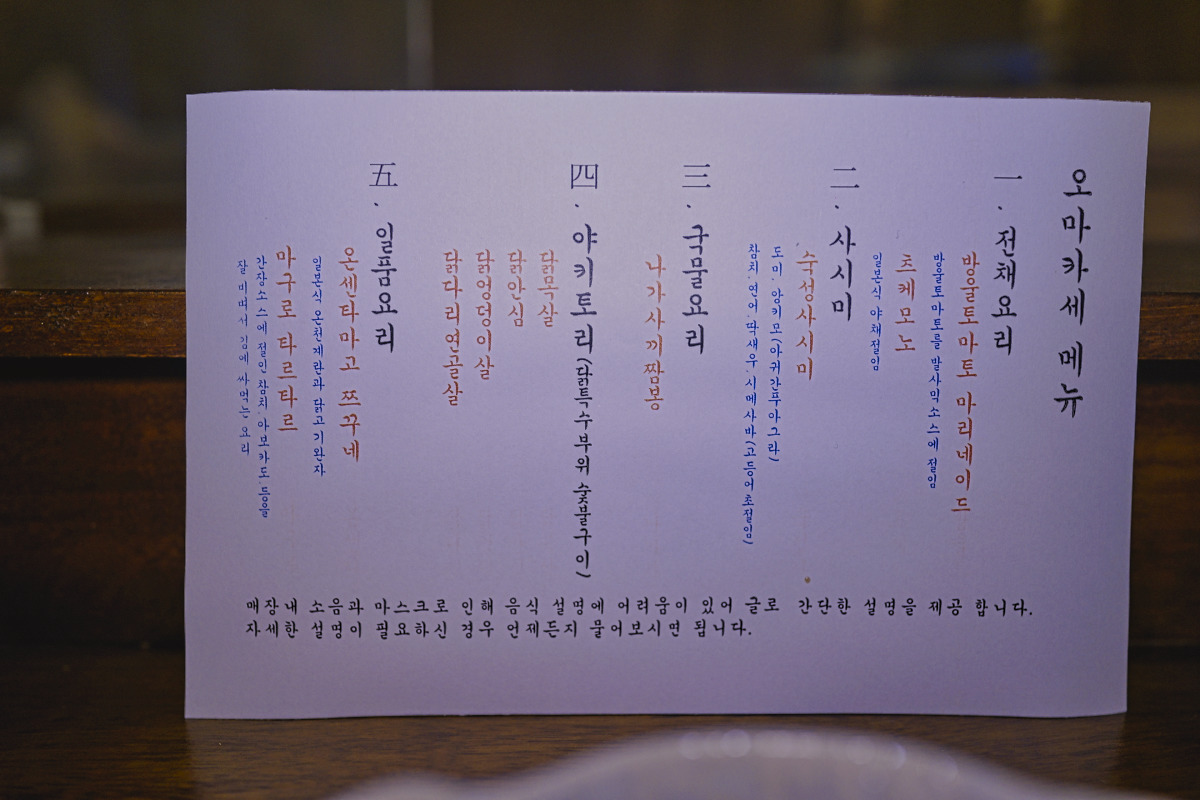 오마카세 메뉴
一. 전채요리
방울토마토 마리네이드
방울토마토를 발사믹소스에 절임
츠케모노
일본식 야채절임
二. 사시미
숙성사시미
도미. 앙키모(아귀간푸아그라)
참치. 연어. 딱새우. 시메사바(고등어초절임)
三. 국물요리
나가사끼짬뽕
四. 야키토리(닭특수부위 숯불구이)
닭목살
닭안심
닭엉덩이살
닭다리연골살
五. 일품요리
온센타마고 쯔꾸네
일본식 온천계란과 닭고기완자
마구로 타르타르
간장소스에 절인 참치. 아보카도.등을
잘 비벼서 김에 싸먹는 요리
매장내 소음과 마스크로 인해 음식 설명에 어려움이 있어 글로 간단한 설명을 제공 합니다.
자세한 설명이 필요하신 경우 언제든지 물어보시면 됩니다.